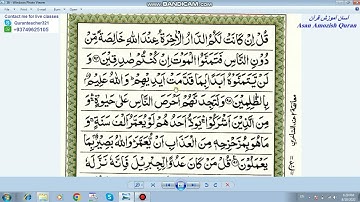 WWW.BANDICAM.COM
Contact me for live classes
Quranteacher321
+93749625105
آسان آموزش قرآن
Asan Amozish Quran
قُلْ اِنْ كَانَتْ لَكُمُ الدَّارُ الْاٰخِرَةُ عِنْدَ اللّٰهِ خَالِصَةً مِّنْ
دُوْنِ النَّاسِ فَتَمَنَّوُا الْمَوْتَ اِنْ كُنْتُمْ صٰدِقِيْنَ
وَلَنْ يَّتَمَنَّوْهُ اَبَدًۢا بِمَا قَدَّمَتْ اَيْدِيْهِمْ ؕ وَاللّٰهُ عَلِيْمٌۢ
بِالظّٰلِمِيْنَ وَلَتَجِدَنَّهُمْ اَحْرَصَ النَّاسِ عَلٰى حَيٰوةٍ ۛۚ وَ
مِنَ الَّذِيْنَ اَشْرَكُوْا ۛۚ يَوَدُّ اَحَدُهُمْ لَوْ يُعَمَّرُ اَلْفَ سَنَةٍ ۚ وَ
مَا هُوَ بِمُزَحْزِحِهٖ مِنَ الْعَذَابِ اَنْ يُّعَمَّرَ ؕ وَاللّٰهُ بَصِيْرٌۢ بِمَا
يَعْمَلُوْنَ قُلْ مَنْ كَانَ عَدُوًّا لِّجِبْرِيْلَ فَاِنَّهٗ نَزَّلَهٗ